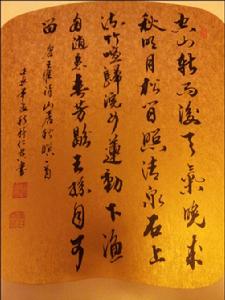 空山新雨後天氣晚來
秋明月松間照清泉石上
流竹喧歸浣女蓮動下漁
舟隨意春芳歇王孫自可
留 唐王維詩山居秋暝一首
書